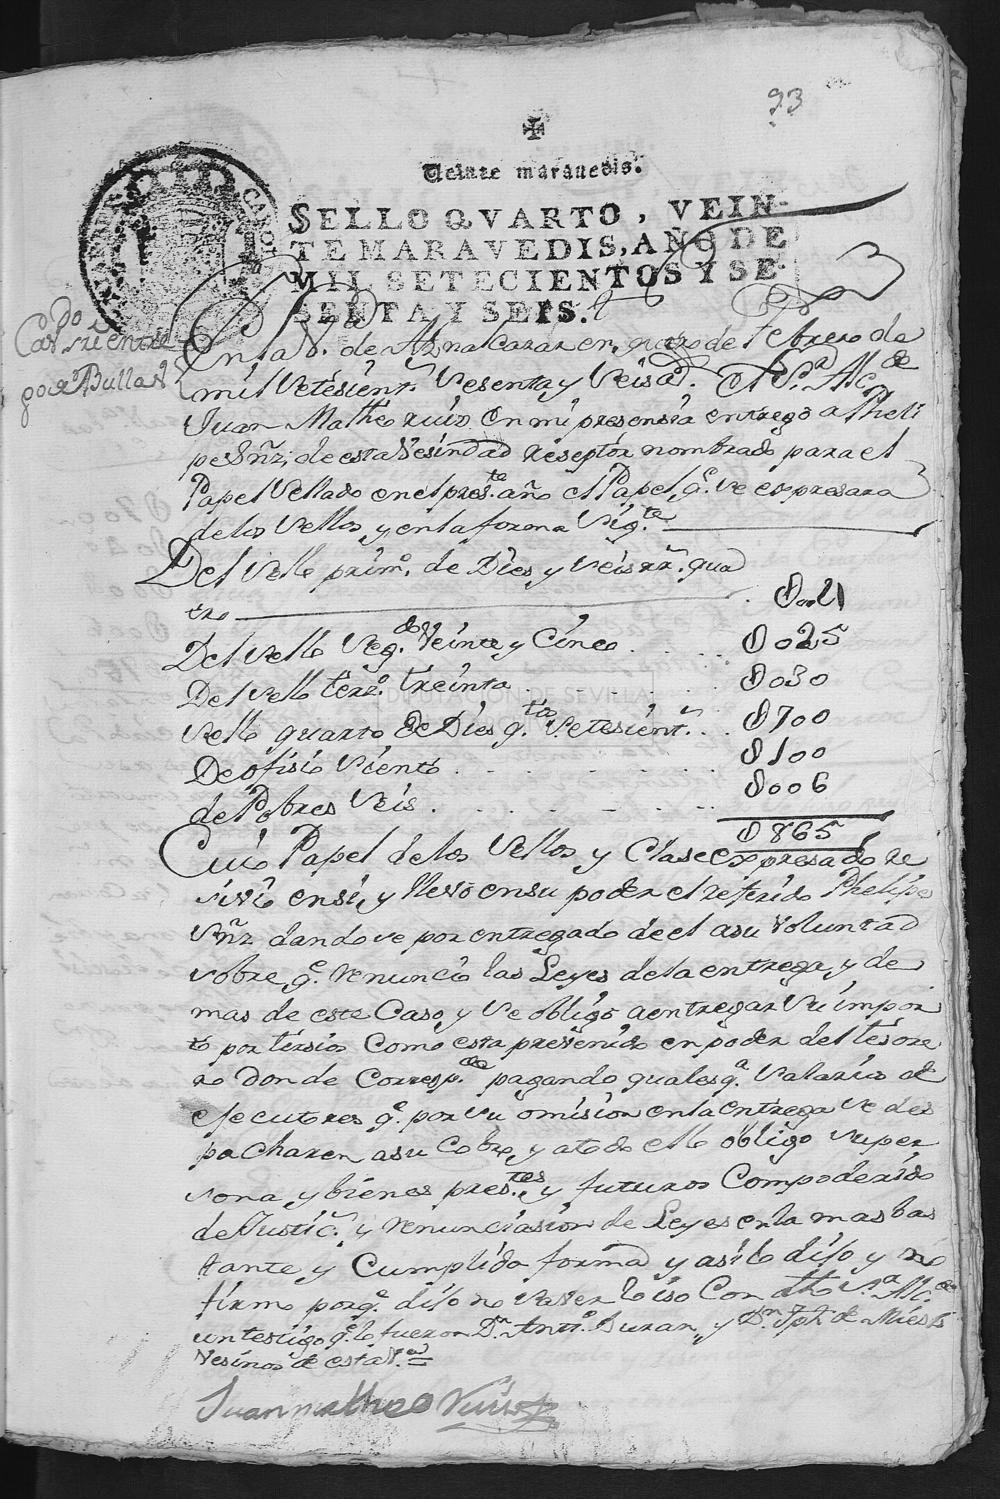 93
Veinte maravedis.
SELLO QVARTO, VEIN-
TE MARAVEDIS, AÑO DE
MIL SETECIENTOS Y SE-
SENTA Y SEIS.
En la Vª. de Aznalcazar en quatro de Febrero de
mil Setesient.s Sesenta y Seis aº. el Sr. Alc.de
Juan Matheo ruiz en mi presensia entregó a Pheli
pe Sñz, de esta Vesindad reseptor nombrado para el
Papel Sellado en el pres.te año el Papel, q.e se expresara
de los Sellos, y en la forma Sig.te
Del Sello prim.o de Dies, y Seis rr.s qua
tro
Del Sello Seg.do Veinte y Cinco 0025
Del Sello terz.o treinta 0030
DIPUTACIÓN DE SEVILLA
Sello quarto de Dies q.tos Setesient.s 0700
De ofisio Siento 0100
de Pobres Seis 0006
0865
Cuio Papel de los Sellos y Clase expresado re
sivió en si, y llevó en su poder el referido Phelipe
Sñz dandose por entregado de el a su Voluntad
sobre q.e renunció las Leyes de la entrega, y de
mas de este Caso, y Se obligó a entregar Su impor
te por tersios Como esta prevenido en poder del tesore
ro donde Corresp.de pagando qualesq.a Salarios de
efecutores q.e por su omision en la entrega se des
pacharen a su Cobro, y a todo ello obligó su per
sona, y bienes pres.tes, y futuros Com poderio
de Justic.s y renunciasion de Leyes en la mas bas
tante y Cumplida forma y asi lo dijo y no
firmó porq.e dijo no saver lo iso Con dho Sr. Alc.de
un testigo q.e lo fueron Dn. Antt.o Duran, y Dn. Jph. de
Vesinos de esta Vª.
Juan matheo Ruis